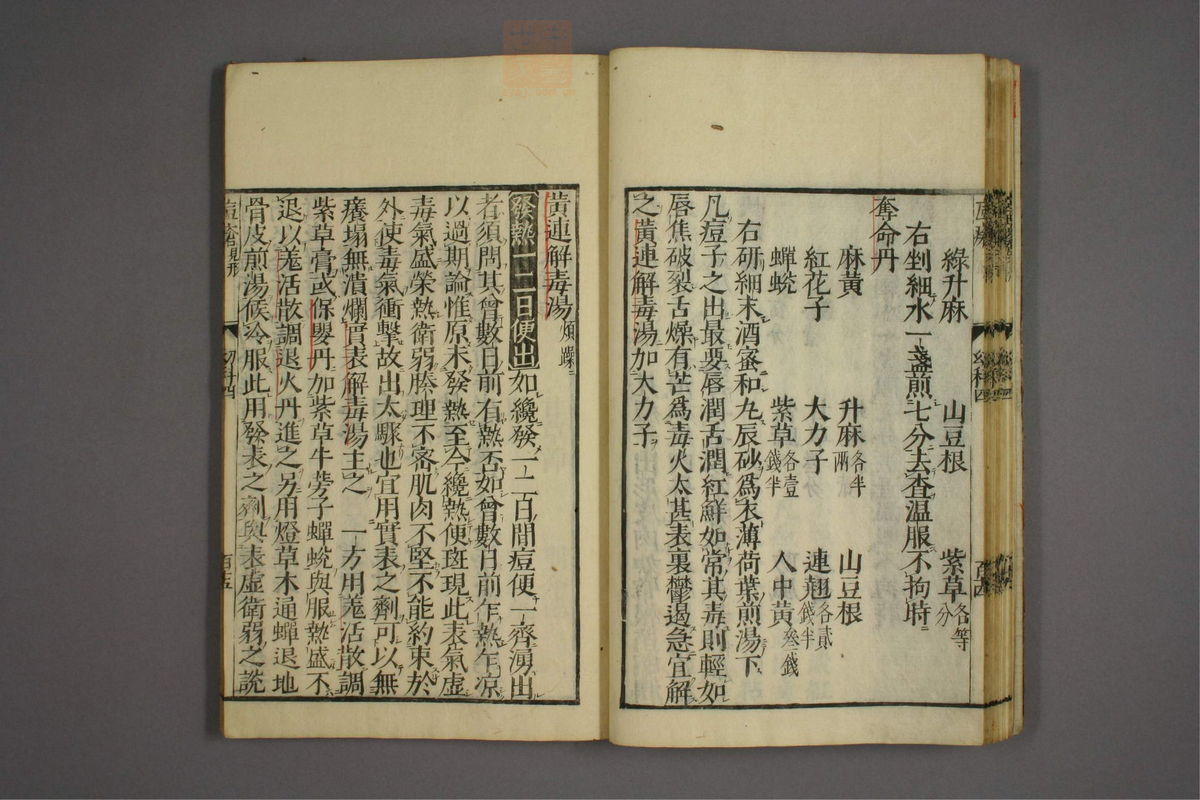 綠升麻 山豆根 紫草各等分
右剉細水一盞煎七分去査温服不拘時
奪命丹
麻黃 升麻各半兩 山豆根
紅花子 大力子 連翹各貳錢半
蟬蛻 紫草各壹錢半 人中黃叁錢
右研細末酒蜜和丸辰砂爲衣薄荷葉煎湯下
凡痘子之出最要唇潤舌潤紅鮮如常其毒則輕如
唇焦破裂舌燥有芒爲毒火太甚表裏欝遏急宜解
之黃連解毒湯加大力子
黃連解毒湯煩躁
發熱一二日便出如纔發一二日間痘便一齊湧出
者須問其曾數日前有熱否如曾數日前乍熱乍凉
以過期論惟原未發熱至今纔熱便斑現此表氣虛
毒氣盛榮熱衛弱腠理不密肌肉不堅不能約束於
外使毒氣衝擊故出太驟也宜用實表之劑可以無
癢塌無潰爛實表解毒湯主之 一方用羗活散調
紫草膏或保嬰丹加紫草牛蒡子蟬蛻與服熱盛不
退以羗活散調退火丹進之另用燈草木通蟬退地
骨皮煎湯候冷服此用發表之劑與表虛衛弱之說
幼科四